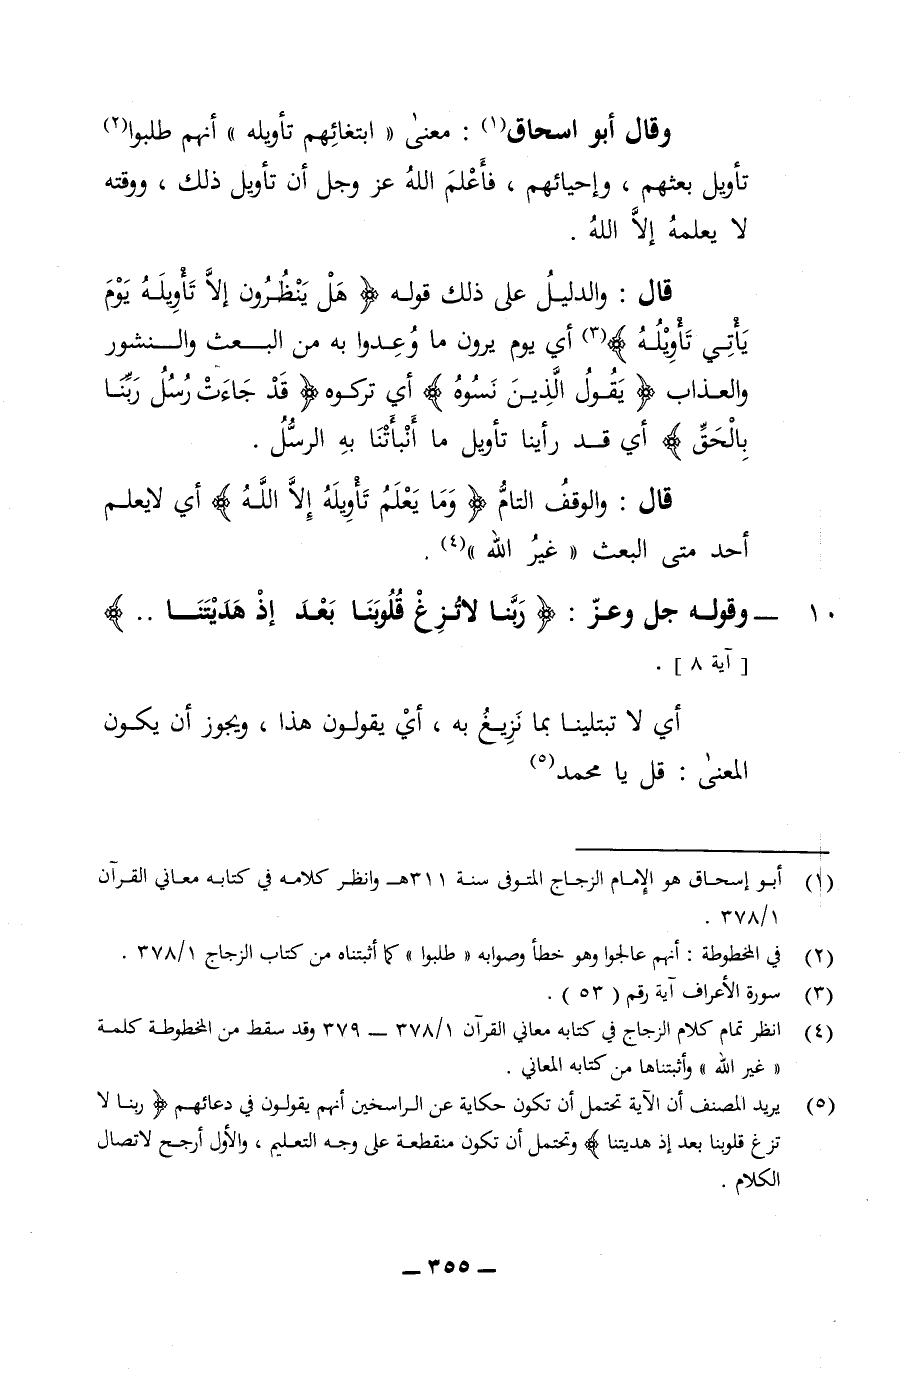 وقال أبو اسحاق(١) : معنىٰ « ابتغائِهم تأويله » أنهم طلبوا(٢)
تأويل بعثهم ، وإحيائهم ، فأَعْلمَ اللهُ عز وجل أن تأويل ذلك ، ووقته
لا يعلمهُ إلاَّ اللهُ .
قال : والدليلُ على ذلك قوله ﴿ هَلْ يَنْظُرُون إلاَّ تَأْوِيلَهُ يَوْمَ
يَأْتِي تَأْوِيْلُهُ ﴾(٣) أي يوم يرون ما وُعِدوا به من البعث والنشور
والعذاب ﴿ يَقُولُ الَّذِينَ نَسُوهُ ﴾ أي تركوه ﴿ قَدْ جَاءَتْ رُسُلُ رَبِّنَا
بِالْحَقِّ ﴾ أي قد رأينا تأويل ما أَنْبأَتْنَا بهِ الرسُّلُ .
قال : والوقفُ التامُّ ﴿ وَمَا يَعْلَمُ تَأْوِيلَهُ إِلاَّ اللَّهُ ﴾ أي لايعلم
أحد متى البعث « غيرُ الله »(٤) .
١٠ ــ وقوله جل وعزّ : ﴿ رَبَّنا لاتُزِغْ قُلُوبَنا بَعْدَ إذْ هَدَيْتَنَا .. ﴾
[ آية ٨ ] .
أي لا تبتلينا بما نَزِيغُ به ، أيْ يقولون هذا ، ويجوز أن يكون
المعنىٰ : قل يا محمد(٥)
(١) أبو إسحاق هو الإمام الزجاج المتوفى سنة ٣١١هـ وانظر كلامه في كتابه معاني القرآن
٣٧٨/١ .
(٢) في المخطوطة : أنهم عالجوا وهو خطأ وصوابه « طلبوا » كما أثبتناه من كتاب الزجاج ٣٧٨/١ .
(٣) سورة الأعراف آية رقم ( ٥٣ ) .
(٤) انظر تمام كلام الزجاج في كتابه معاني القرآن ٣٧٨/١ ــ ٣٧٩ وقد سقط من المخطوطة كلمة
« غير الله » وأثبتناها من كتابه المعاني .
(٥) يريد المصنف أن الآية تحتمل أن تكون حكاية عن الراسخين أنهم يقولون في دعائهم ﴿ ربنا لا
تزغ قلوبنا بعد إذ هديتنا ﴾ وتحتمل أن تكون منقطعة على وجه التعليم ، والأول أرجح لاتصال
الكلام .
ــ ٣٥٥ ــ